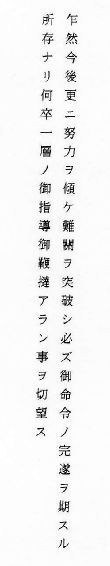 乍然今後更ニ努力ヲ傾ケ難關ヲ突破シ必ズ御命令ノ完遂ヲ期スル
所存ナリ何卒一層ノ御指導御鞭撻アラン事ヲ切望ス